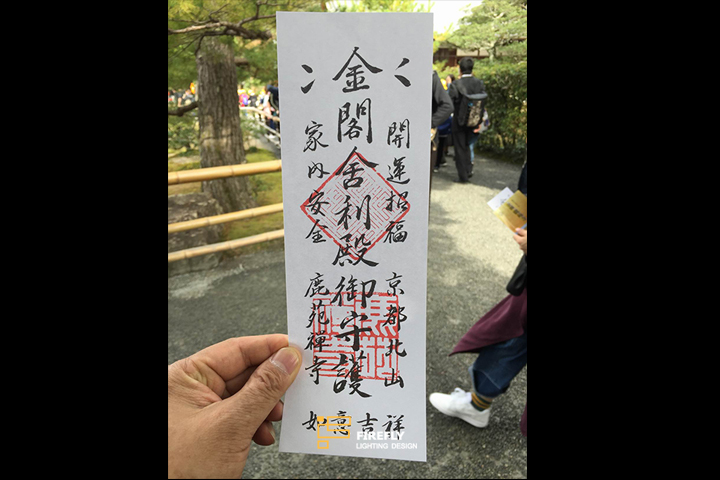 開運招福 京都北山
金閣舍利殿御守護
家内安全 鹿苑禅寺
祥
吉
意
如
FIREFLY
LIGHTING DESIGN